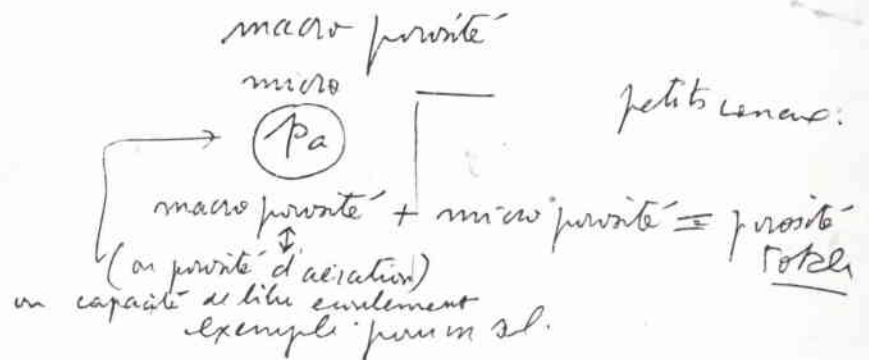 macro porosité
micro
petits canaux :
Pa
macro porosité + micro porosité = porosité
totale
(ou porosité d'aération)
ou capacité de libre écoulement
exemple pour un sol.